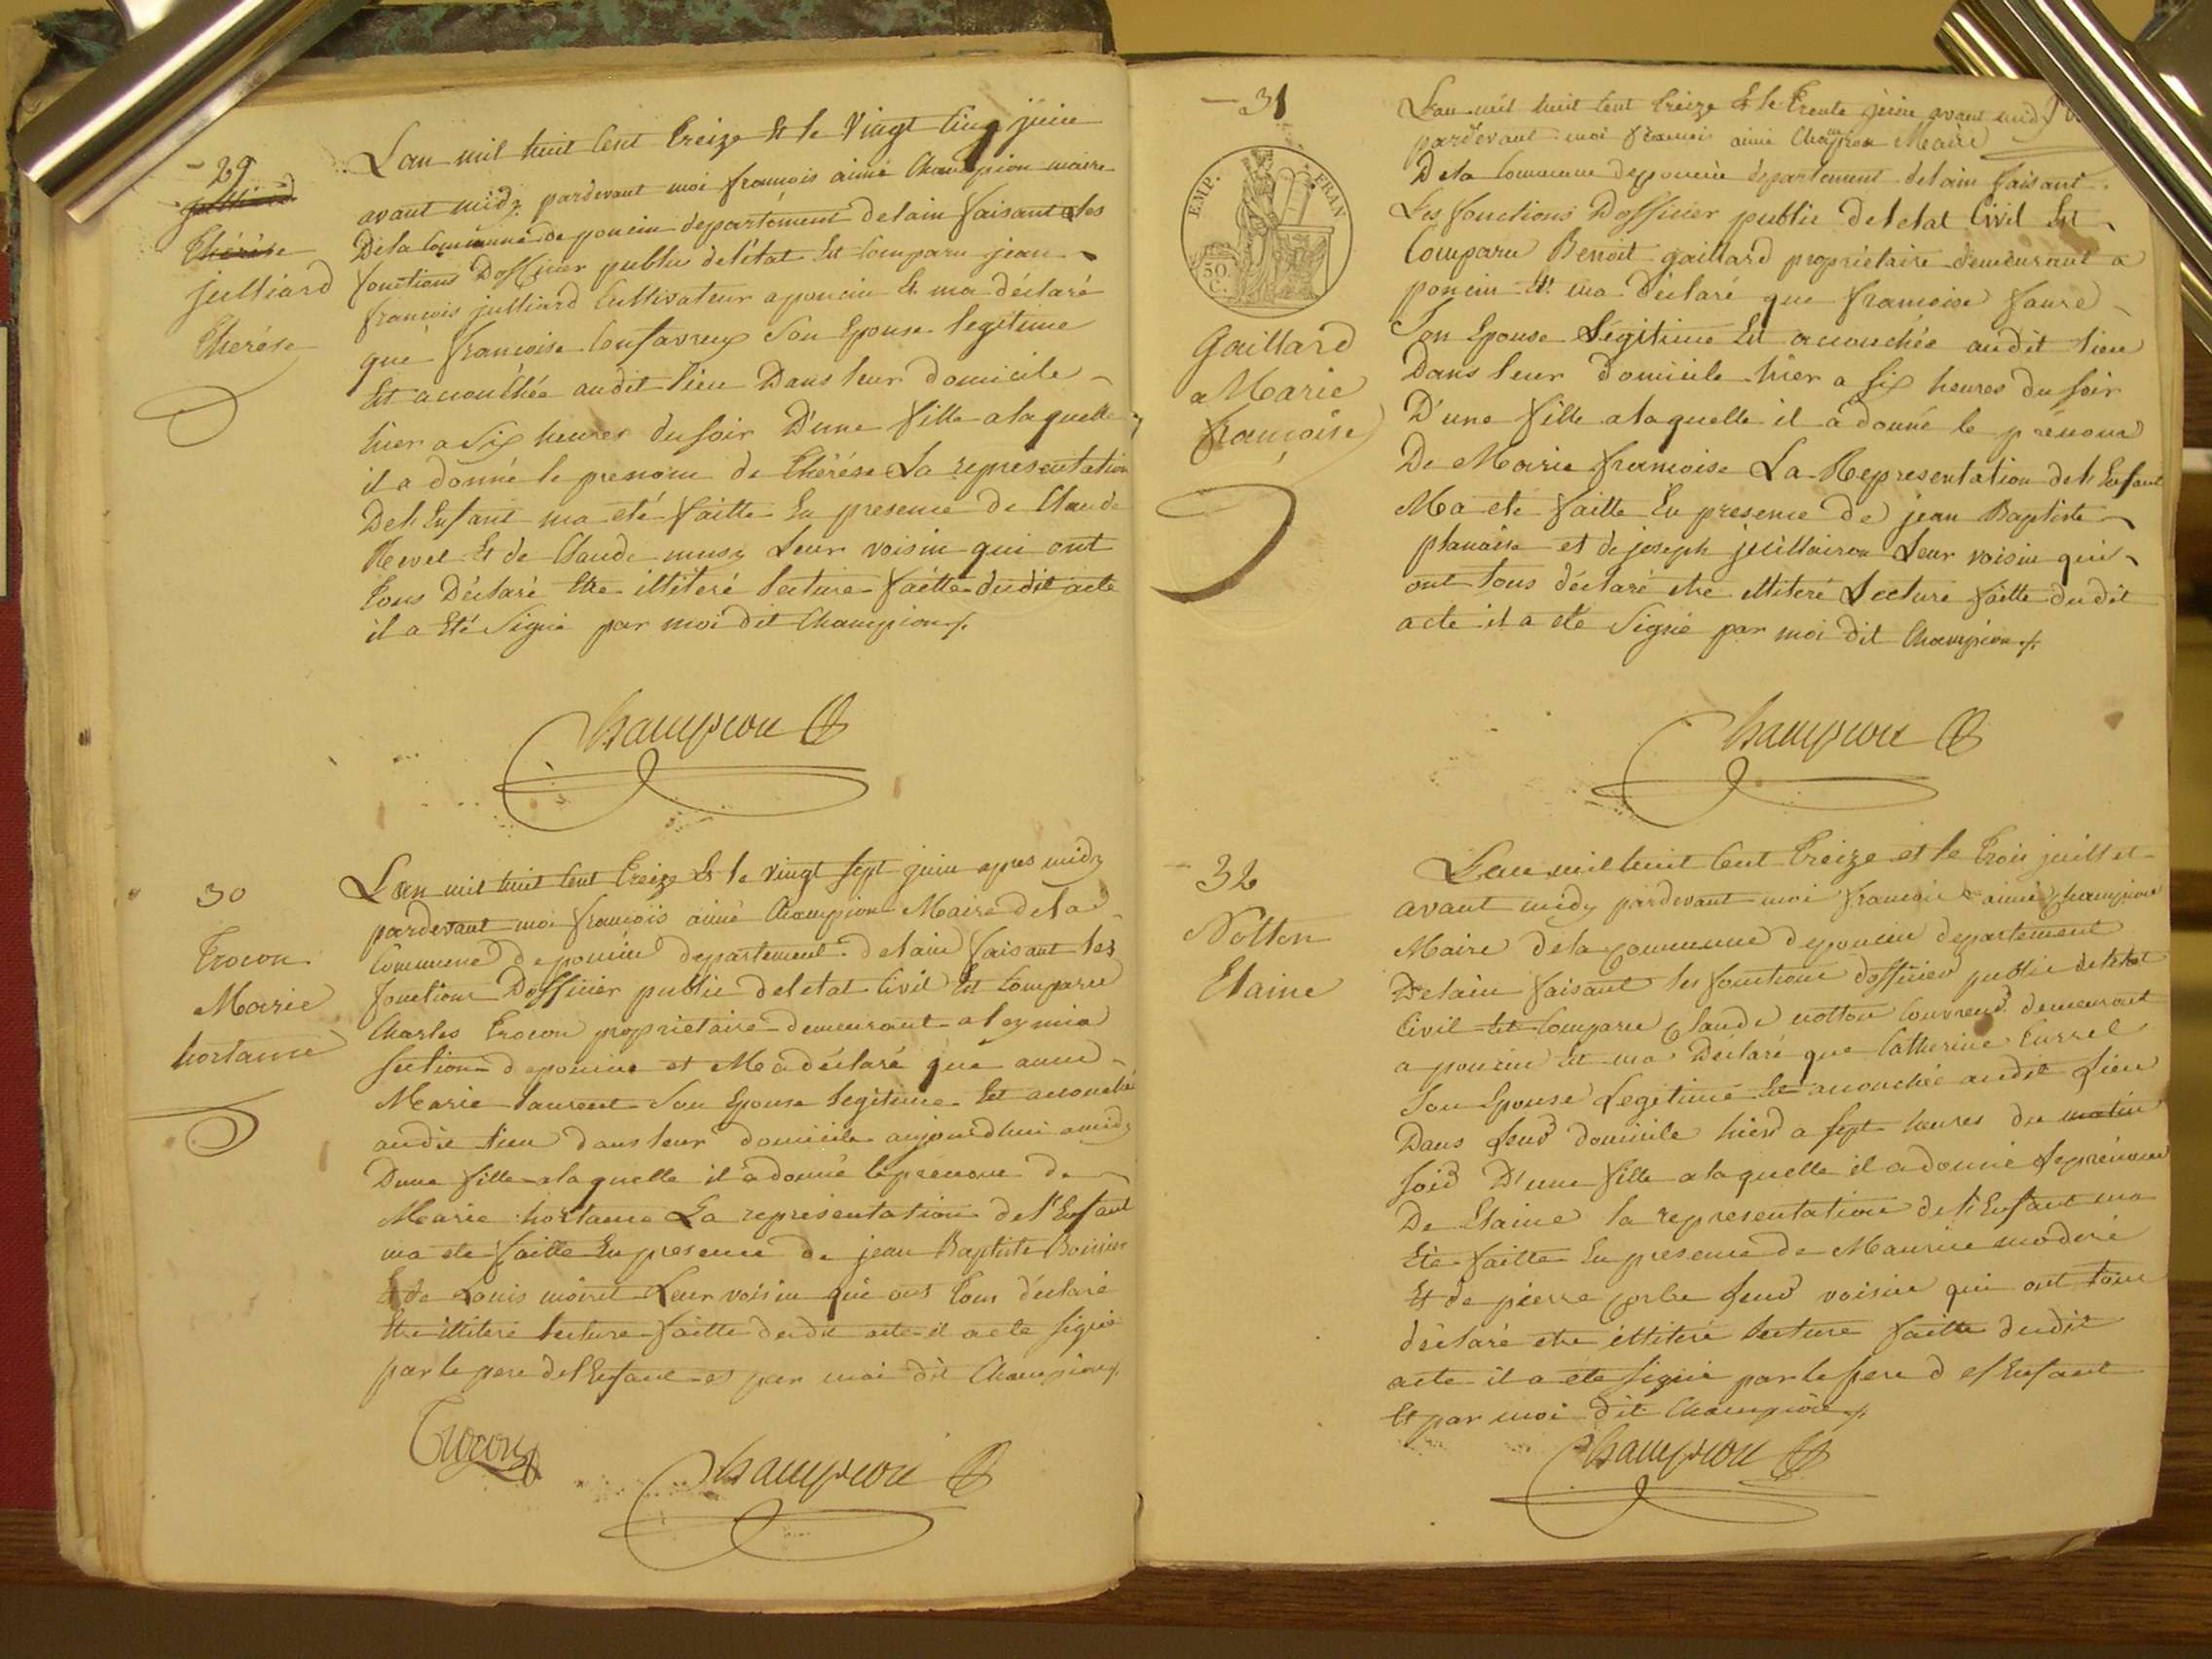 29
Julliard
Thérèse
julliard
thérèse
L'an mil huit Cent treize Et le Vingt Cinq juin
avant midy pardevant moi françois aimé Champion maire
De la Commune de poncin departement delain faisant Les
fonctions Dofficier public de létat Est Comparu jean
françois julliard Cultivateur a poncin Et ma déclaré
que françoise Confavreux Son Epouse legitime
Est acouchée audit lieu Dans leur domicile
hier a Six heures du soir D'une fille a laquelle
il a donné le prenom de thérèse La représentation
De l'Enfant ma eté faitte En presence de Claude
Revel Et de Claude musy Leur voisin qui ont
tous Déclaré Etre illiteré lecture faitte dudit acte
il a Eté Signé par moi dit Champion
Champion
30
trocon
Marie
hortance
L'an mil huit Cent treize Et le vingt sept juin apres midy
pardevant moi françois aimé Champion Maire dela
Commune de poncin departement delain faisant les
fonctions Dofficier public deletat Civil Est Comparu
Charles trocon propriétaire demeurant a leymia
section de poncin et Ma déclaré que anne
Marie laurent Son Epouse legitime Est acouchée
audit lieu dans leur domicile aujourdhui a midy
Dune fille a laquelle il a donné le prénom de
Marie hortance La representation de l'Enfant
ma ete faitte En presence de jean Baptiste
Et de Louis moiret Leur voisin qui ont tous déclaré
Etre illiteré lecture faitte dudit acte il a ete signé
par le pere del Enfant et par moi dit Champion
Trocon
Champion
31
EMP. FRAN
50 C.
Gaillard
Marie
françoise
L'an mil huit Cent treize Et le trente juin avant midy
pardevant moi françois aimé Champion Maire
Dela Commune de poncin département delain faisant
Les fonctions Dofficier public deletat Civil Est
Comparu Benoit gaillard propriétaire demeurant a
poncin Et ma déclaré que françoise faure
Son Epouse Légitime Est acouchée audit lieu
Dans leur domicile hier a six heures du soir
D'une fille alaquelle il a donné le prénom
De Marie françoise La Representation del Enfant
Ma eté faitte En presence de jean Baptiste
planaise et de joseph juillairon Leur voisin qui
ont tous déclaré etre illiteré Lecture faitte dudit
acte il a eté Signé par moi dit Champion
Champion
32
Notton
Etaine
L'an mil huit Cent treize et le trois juillet
avant midy pardevant moi françois aimé Champion
Maire dela Commune de poncin departement
Delain faisant les fonctions dofficier public deletat
Civil Est Comparu Claude notton Couvreur demeurant
a poncin Et ma Déclaré que Catherine Curvel
Son Epouse Legitime Est acouchée audit Lieu
Dans leur domicile hier a sept heures du matin
soir D'une fille alaquelle il a donné Le prénom
De Etaine la representation del Enfant ma
Eté faitte En presence de Maurice modere
Et de pierre Leur voisin qui ont tous
déclaré etre illiteré lecture faitte dudit
acte il a été signé par le pere d el Enfant
Et par moi dit Champion
Champion